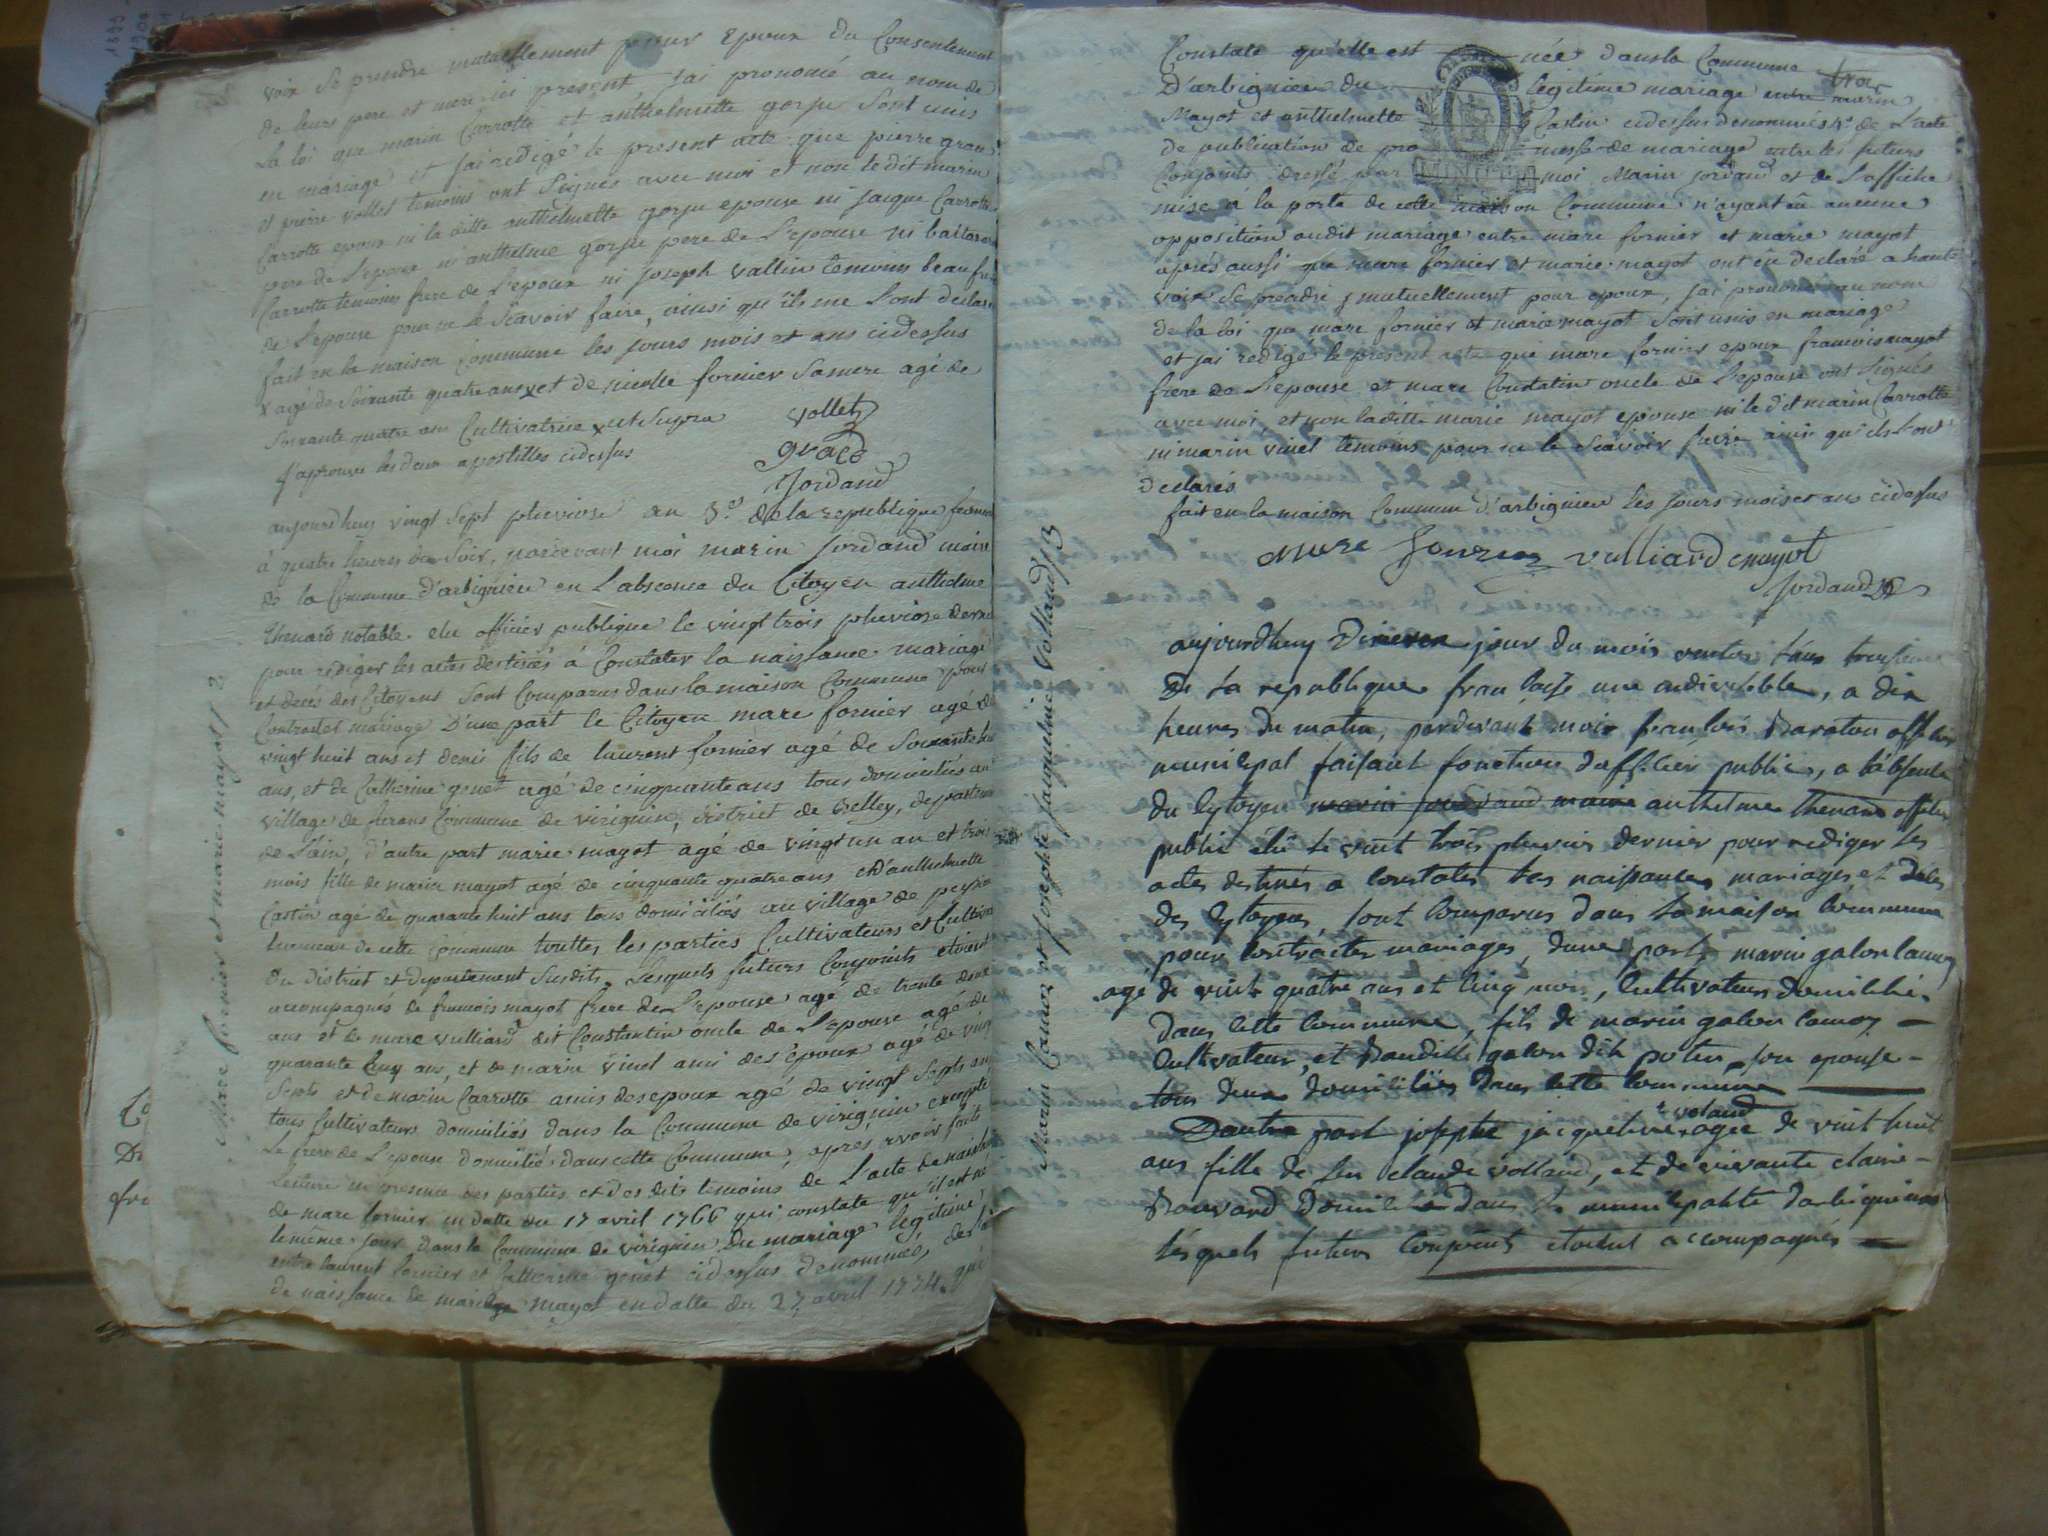 voix se prendre mutuellement pour epoux du Consentement
de leurs pere et mere ici present, jai prononcé au nom de
La loi que marin Carrotte et anthelmette gorju sont unis
en mariage et jai redigé le present acte que pierre gron
et pierre vollet temoins ont Signés avec moi et non le dit marin
Carrotte epoux ni la ditte anthelmette gorju epouse ni jacque Carrotte
pere de L'epoux ni anthelme gorju pere de L'epouse ni
Carrotte temoins frere de L'epoux ni joseph vallin temoins beau fre
de L'epouse pour ne le Scavoir faire, ainsi qu'ils me L'ont declaré
fait en la maison Commune les jours mois et ans cidessus
x agé de Soixante quatre ans x et de nicolle fornier Samere agé de
Soixante quatre ans Cultivatrice x ut Supra
vollet
J'approuve les deux apostilles cidessus
Jordand
Marc fornier et marie mayot
aujourdhuy vingt Sept pluviose an 3e de la republique
à quatre heures du Soir, pardevant moi marin Jordand maire
de la Commune d'arbignieu en L'absence du Citoyen anthelme
thenard notable elu officier publique le vingt trois pluviose dernier
pour rediger les actes destinés à Constater la naissance mariage
et decés des Citoyens Sont Comparus dans la maison Commune pour
Contracter mariage D'une part le Citoyen marc fornier agé de
vingt huit ans et demi fils de laurent fornier agé de Soixante
ans, et de Catherine genet agé de cinquante ans tous domiciliés au
village de Commune de virignin, district de Belley, departement
de L'ain, d'autre part marie mayot agé de vingt un an et trois
mois fille de marin mayot agé de cinquante quatre ans et d'anthelmette
Castin agé de quarante huit ans tous domiciliés au village de peyzieu
hameau de cette Commune touttes les parties Cultivateurs et Cultiva
du District et departement Susdits, Lesquels futurs Conjoints etoient
accompagnés de francois mayot frere de L'epouse agé de trente deux
ans et de marc vulliard dit Constantin oncle de L'epouse agé de
quarante ans, et de marin vinet ami des epoux agé de vingt
Septs et de marin Carrotte amis des epoux agé de vingt Septs ans
tous Cultivateurs domiciliés dans la Commune de virignin excepté
Le frere de L'epouse domicilié dans cette Commune, apres avoir fait
Lecture en presence des parties et des dits temoins de L'acte de naissance
de marc fornier en datte du 17 avril 1766 qui constate qu'il est né
le même jour dans la Commune de virignin du mariage legitime
entre laurent fornier et Catherine genet cidessus denommés, de
de naissance de marie mayot en datte du 27 avril 1774 qui
Constate qu'elle est née dans la Commune
D'arbignieu du legitime mariage entre marin
Mayot et anthelmette Castin cidessus denommés de L'acte
de publication de promesse de mariage entre les futurs
Conjoints dressé par moi Marin jordand et de L'affiche
mise à la porte de cette maison Commune n'ayant eu aucune
opposition audit mariage entre marc fornier et marie mayot
aprés aussi que marc fornier et marie mayot ont eu declaré a haute
voix Se prendre mutuellement pour epoux, jai prononcé au nom
de la loi que marc fornier et marie mayot Sont unis en mariage
et jai redigé le present acte que marc fornier epoux francois mayot
frere de L'epouse et marc Constatin oncle de L'epouse ont Signés
avec moi, et non laditte marie mayot epouse ni le dit marin Carrotte
ni marin vinet temoins pour ne le Scavoir faire ainsi qu'ils L'ont
declarés
fait en la maison Commune d'arbignieu les jours mois et ans cidessus
marc fournier vulliard mayot
Jordand
Marin Camoz et josephte jacqueline Volland
aujourdhuy jour du mois
De La republique francaise une indivisible, a dix
heures du matin, pardevant moi francois Baraton officier
municipal faisant fonction dofficier public, a labsence
du Cytoyen marin jordand maire anthelme thenard officier
public élû le vint trois pluvios dernier pour rediger les
actes destinés a constater les naissances mariages et décés
des Cytoyens, sont comparus dans la maison commune
pour contracter mariages, dune part marin galon camoz
agé de vint quatre ans et cinq mois, cultivateur domicilié
dans cette commune, fils de marin galon camoz
Cultivateur, et galon dit son epouse
tous deux domiciliés dans cette commune
Dautre part josephte jacqueline volland agée de vint huit
ans fille de feu claude volland, et de vivante claire
Bouvard Domicilié dans la municipalité darbignieu
lésquels futurs conjoints étoient accompagnés